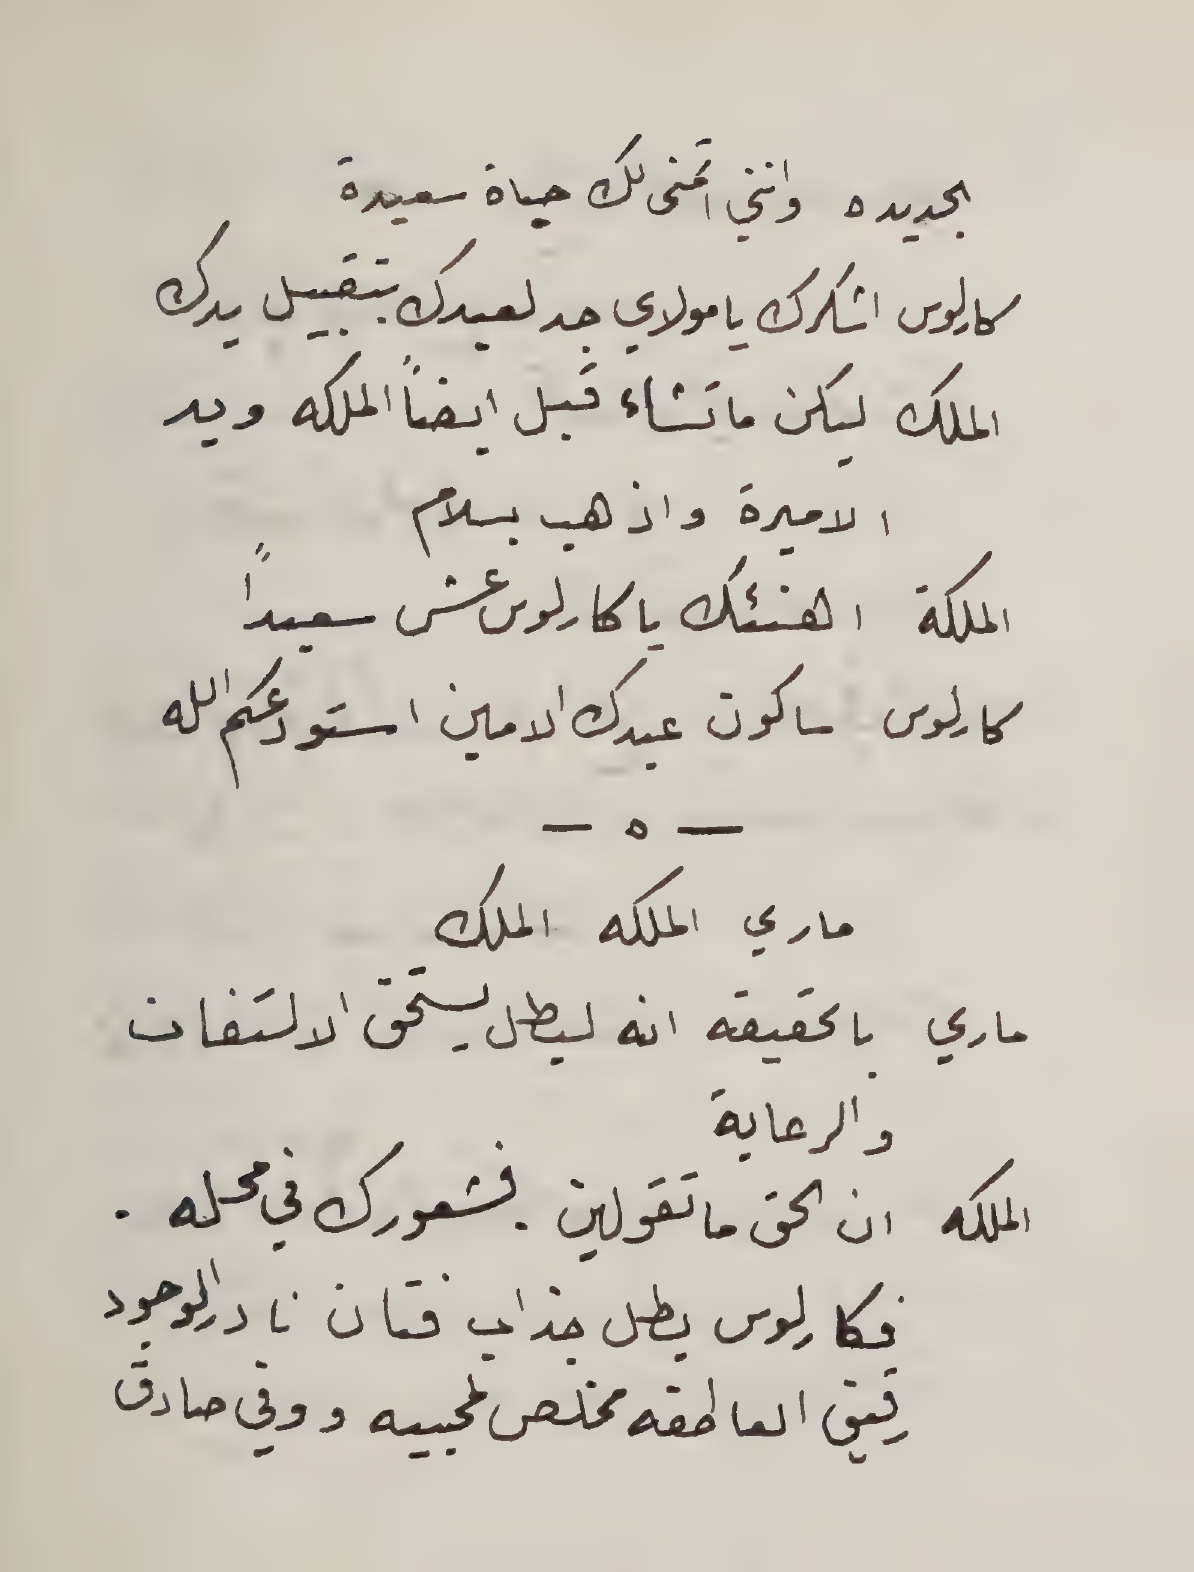 الجديده وانني اتمنى لك حياة سعيدة
كارلوس اشكرك يا مولاي جد لعبدك بتقبيل يدك
الملك ليكن ما تشاء قبل ايضاً الملكه ويد
الاميرة واذهب بسلام
الملكة اهنئك يا كارلوس عش سعيداً
كارلوس ساكون عبدك الامين استودعكم الله
— ه —
ماري الملكه الملك
ماري بالحقيقه انه لبطل يستحق الالتفات
والرعاية
الملكه ان الحق ما تقولين . فشعورك في محله .
فكارلوس بطل جذاب فتان نادر الوجود
رقيق العاطفه مخلص لمحبيه ووفي صادق